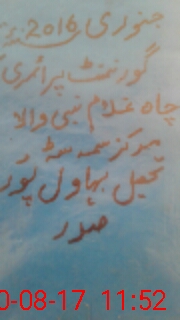 جنوری 2016
گورنمنٹ پرائمری
چاہ غلام نبی والا
مرکز سمہ سٹہ
تحصیل بہاول پور
صدر
0-08-17 11:52